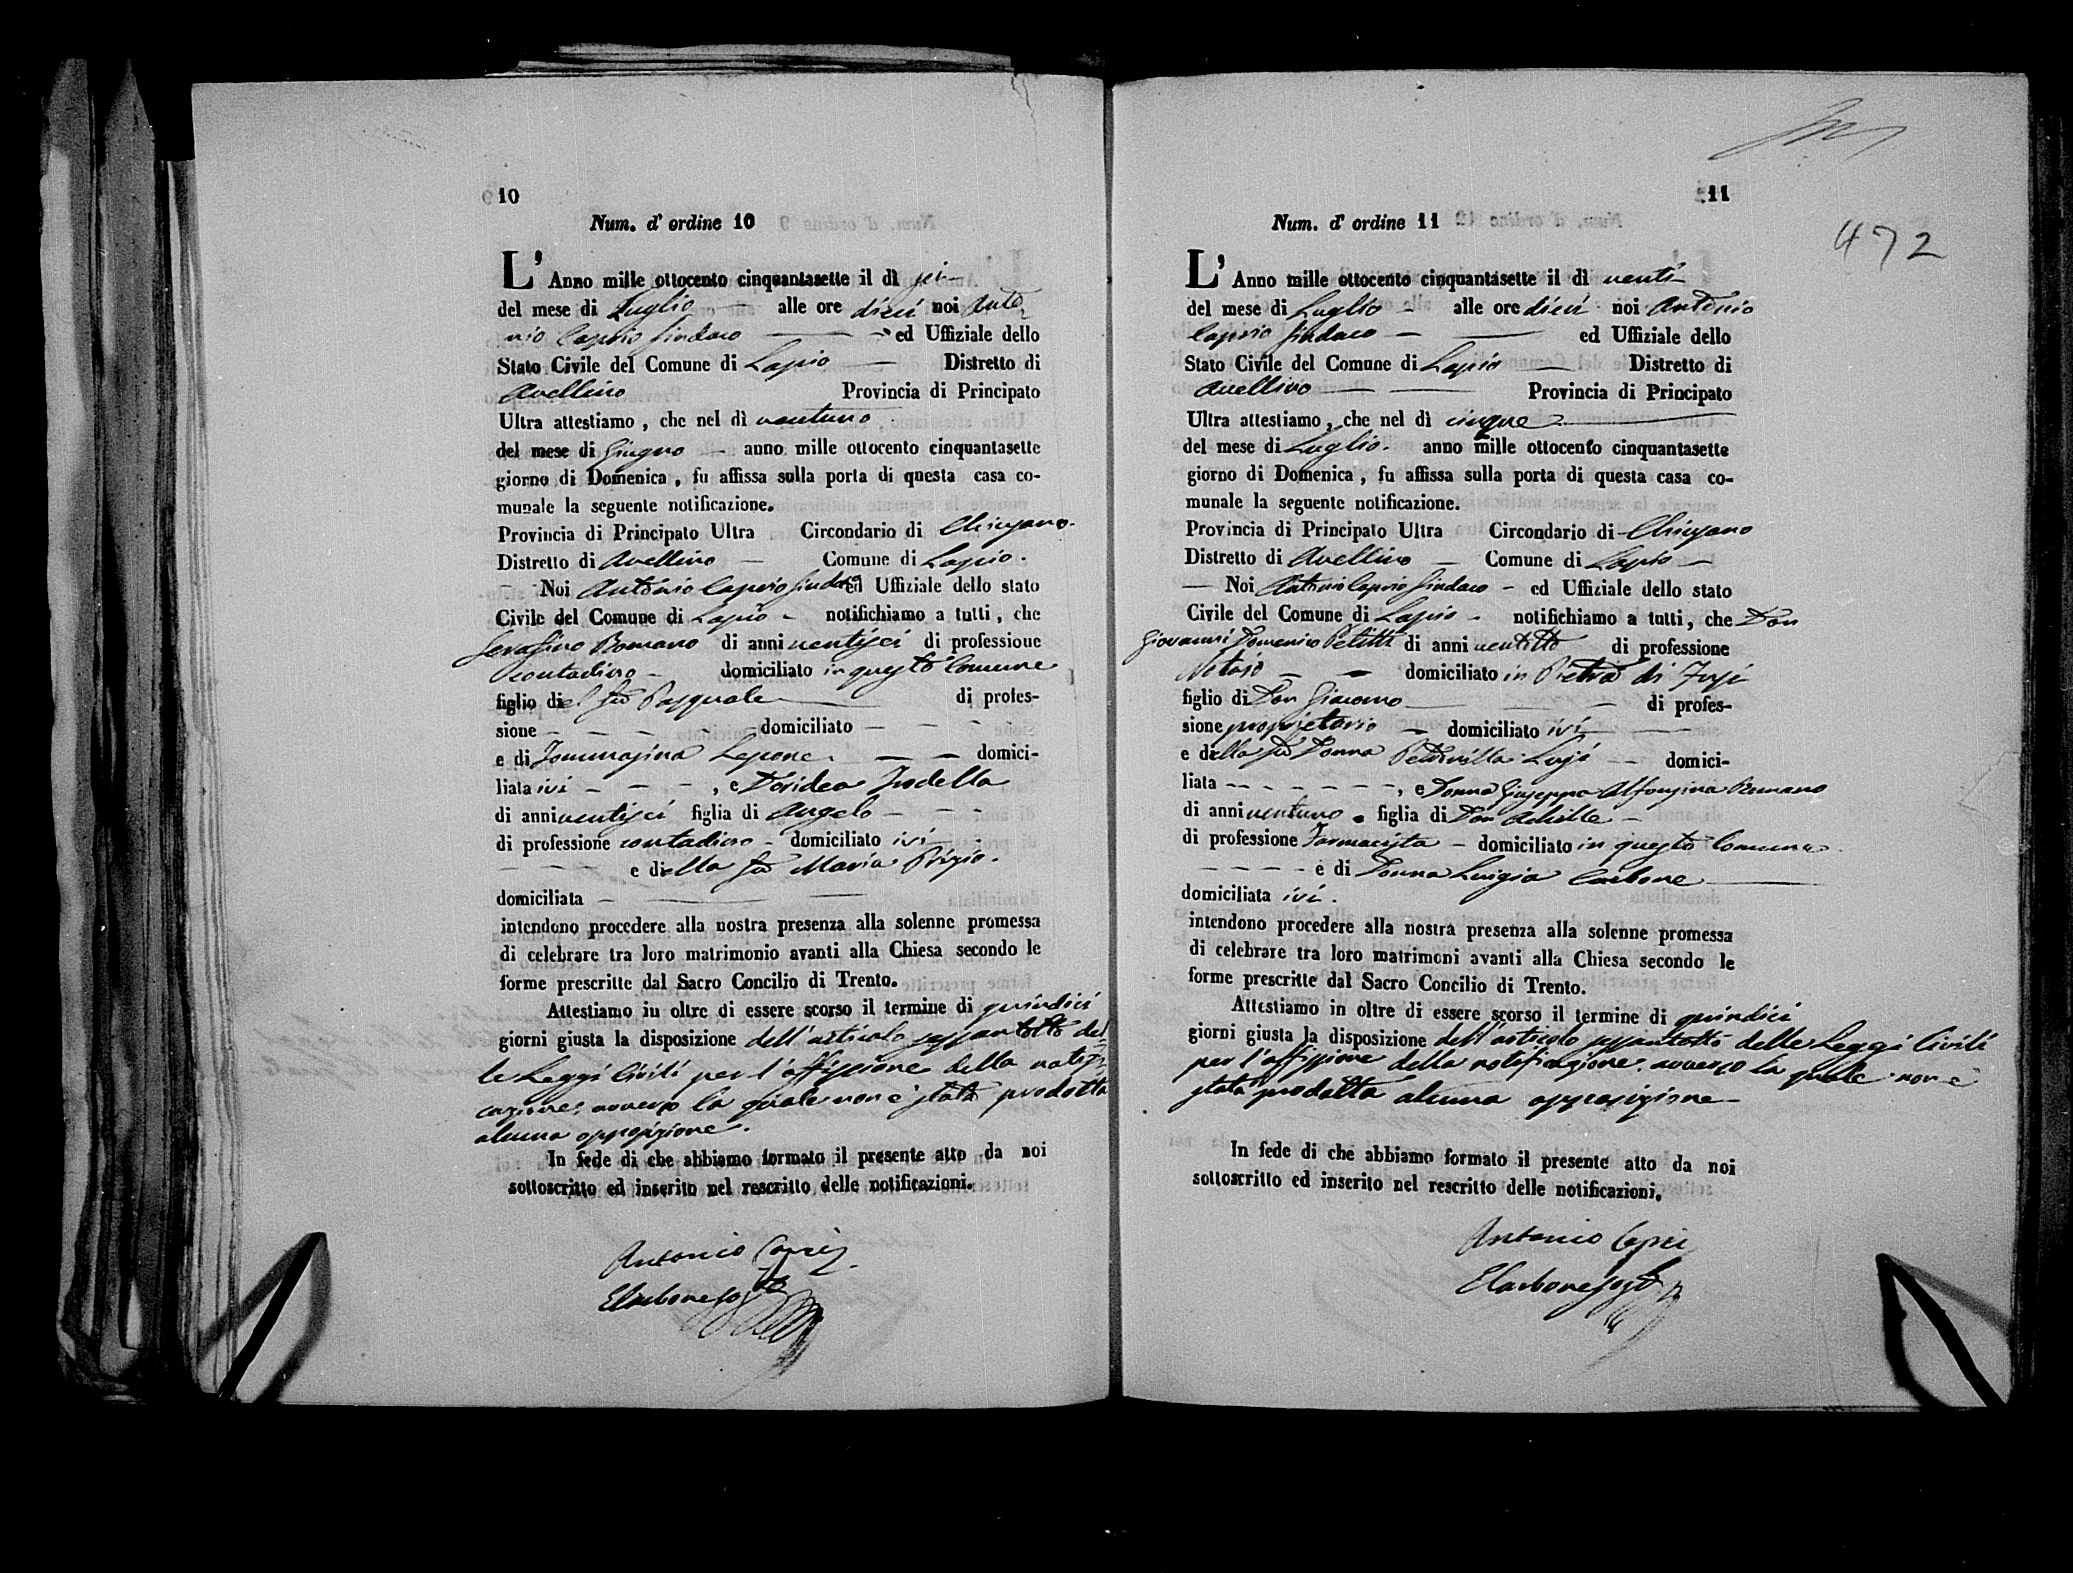 10
Num. d' ordine 10
L'Anno mille ottocento cinquantasette il dì sei
del mese di Luglio alle ore dieci noi Anto-
nio Caprio Sindaco ed Uffiziale dello
Stato Civile del Comune di Lapio Distretto di
Avellino Provincia di Principato
Ultra attestiamo, che nel dì ventuno
del mese di Giugno anno mille ottocento cinquantasette
giorno di Domenica, fu affissa sulla porta di questa casa co-
munale la seguente notificazione.
Provincia di Principato Ultra Circondario di Chiusano.
Distretto di Avellino Comune di Lapio.
Noi Antonio Caprio Sindaco ed Uffiziale dello stato
Civile del Comune di Lapio notifichiamo a tutti, che
Serafino Romano di anni ventisei di professione
contadino domiciliato in questo Comune
figlio del fù Pasquale di profes-
sione domiciliato
e di Tommasina Lepone domici-
liata ivi, e Doridea Iodella
di anni ventisei figlia di Angelo
di professione contadino domiciliato ivi
e della fù Maria Prizio.
domiciliata
intendono procedere alla nostra presenza alla solenne promessa
di celebrare tra loro matrimonio avanti alla Chiesa secondo le
forme prescritte dal Sacro Concilio di Trento.
Attestiamo in oltre di essere scorso il termine di quindici
giorni giusta la disposizione dell'articolo sessantotto del-
le Leggi Civili per l'affissione della notifi-
cazione, avverso la quale non è stata prodotta
alcuna opposizione.
In fede di che abbiamo formato il presente atto da noi
sottoscritto ed inserito nel rescritto delle notificazioni.
Antonio Caprio
ECarbone
11
472
Num. d' ordine 11
L'Anno mille ottocento cinquantasette il dì venti
del mese di Luglio alle ore dieci noi Antonio
Caprio Sindaco ed Uffiziale dello
Stato Civile del Comune di Lapio Distretto di
Avellino Provincia di Principato
Ultra attestiamo, che nel dì cinque
del mese di Luglio. anno mille ottocento cinquantasette
giorno di Domenica, fu affissa sulla porta di questa casa co-
munale la seguente notificazione.
Provincia di Principato Ultra Circondario di Chiusano
Distretto di Avellino Comune di Lapio
Noi Antonio Caprio Sindaco ed Uffiziale dello stato
Civile del Comune di Lapio notifichiamo a tutti, che Don
Giovanni Domenico Petitti di anni ventotto di professione
Notaro domiciliato in Pietra di Fusi
figlio di Don Giacomo di profes-
sione proprietario domiciliato ivi
e della fù Donna Petronilla Lusi domici-
liata, e Donna Giuseppa Alfonsina Romano
di anni ventuno figlia di Don Achille
di professione Farmacista domiciliato in questo Comune
e di Donna Luigia Carbone
domiciliata ivi.
intendono procedere alla nostra presenza alla solenne promessa
di celebrare tra loro matrimoni avanti alla Chiesa secondo le
forme prescritte dal Sacro Concilio di Trento.
Attestiamo in oltre di essere scorso il termine di quindici
giorni giusta la disposizione dell'articolo sessantotto delle Leggi Civili
per l'affissione della notificazione, avverso la quale non è
stata prodotta alcuna opposizione
In fede di che abbiamo formato il presente atto da noi
sottoscritto ed inserito nel rescritto delle notificazioni.
Antonio Caprio
ECarbone